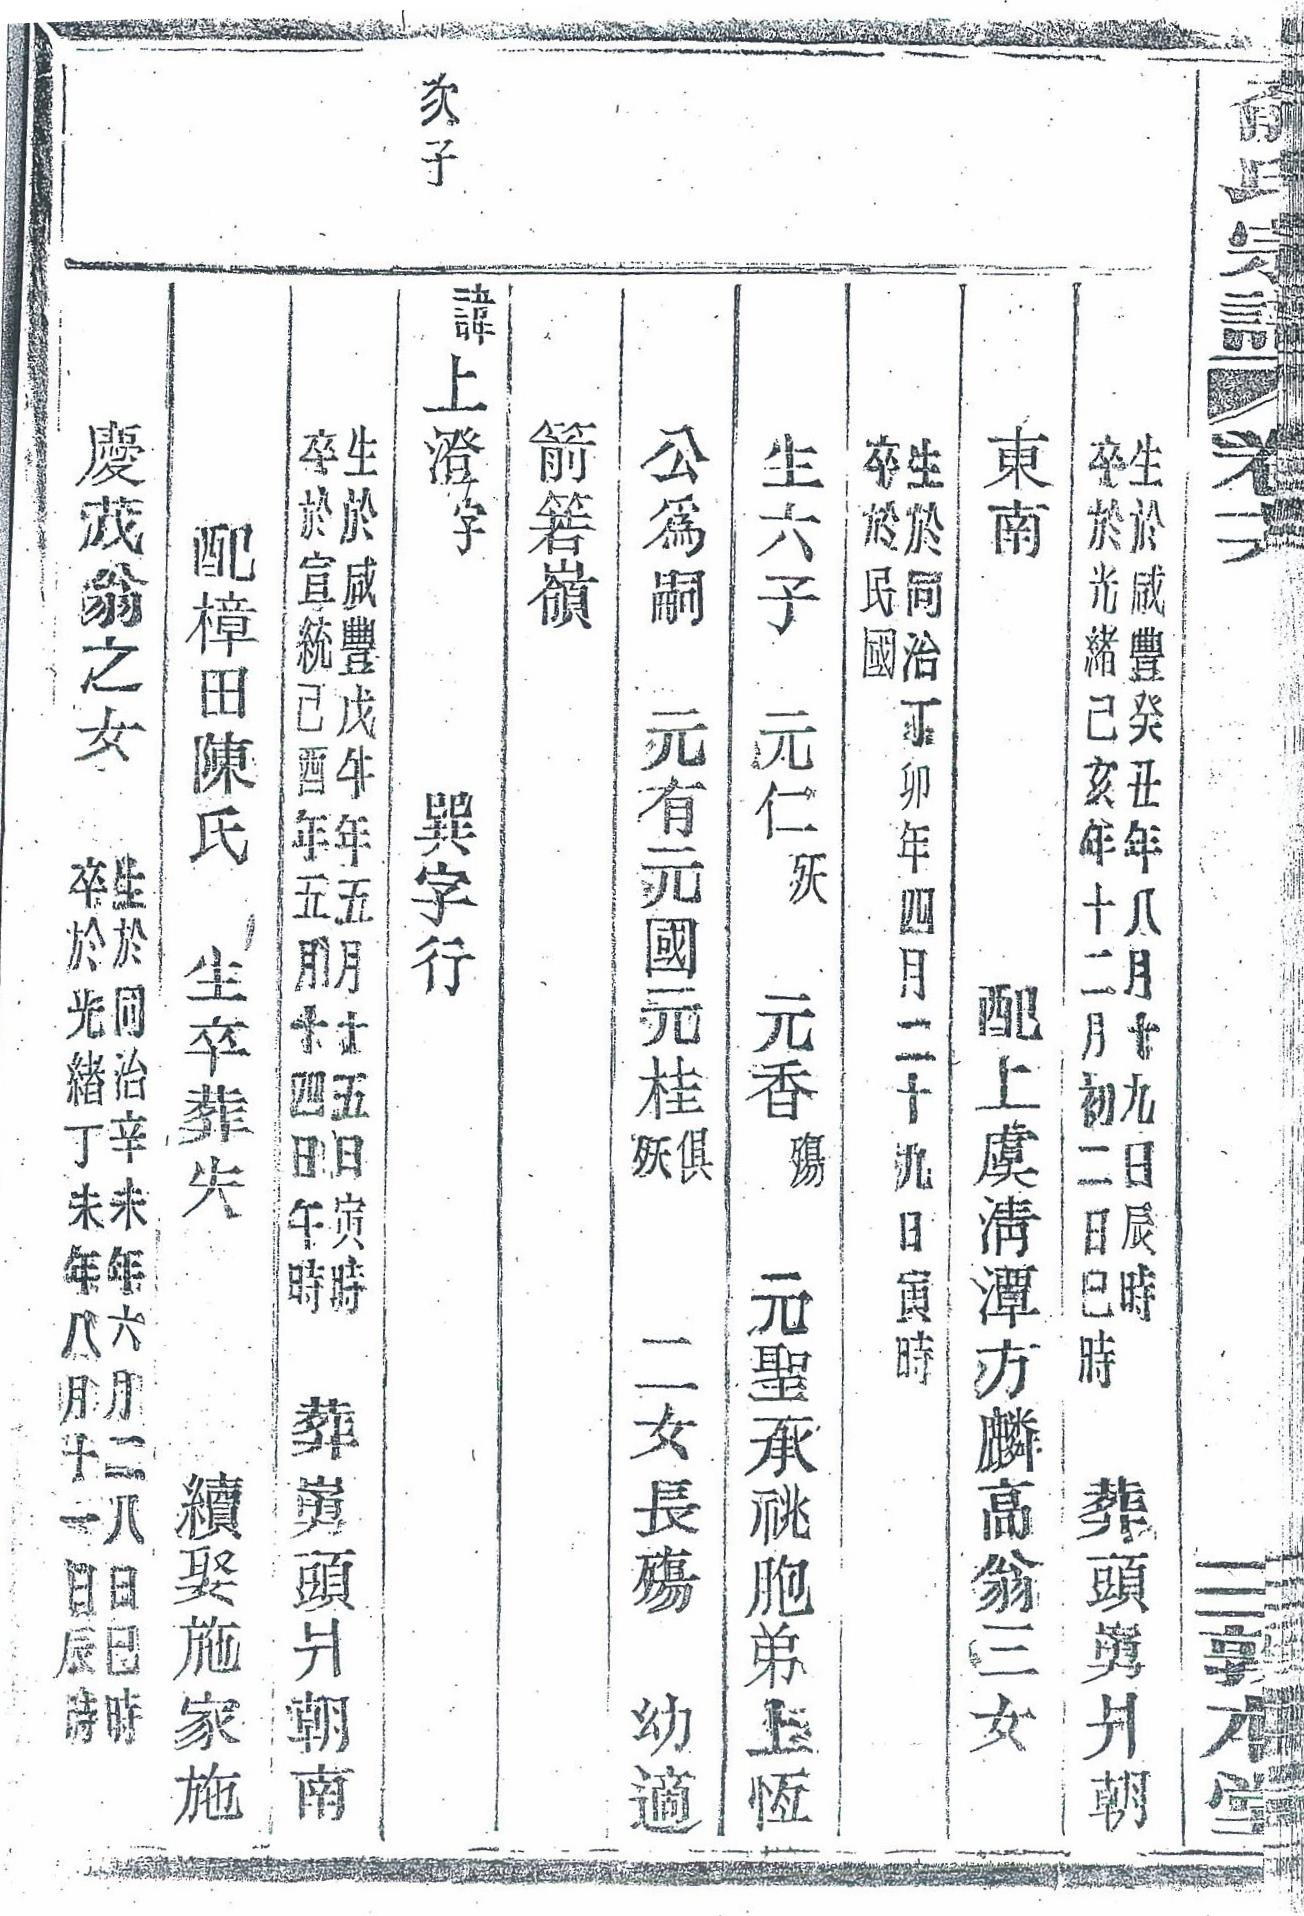 俞氏宗譜
卷六
三
敦本堂
生於咸豐癸丑年八月十九日辰時
卒於光緒己亥年十二月初二日巳時
葬頭嵏爿朝
東南
配上虞淸潭方麟高翁三女
生於同治丁卯年四月二十九日寅時
卒於民國
生六子 元仁殀 元香殤 元聖承祧胞弟上恆
公爲嗣 元有元國元桂俱殀 二女長殤 幼適
箭箬嶺
次子
諱上澄字 巽字行
生於咸豐戊午年五月十五日寅時
卒於宣統己酉年五月十四日午時
葬嵏頭爿朝南
配樟田陳氏 生卒葬失 續娶施家施
慶茂翁之女
生於同治辛未年六月二八日巳時
卒於光緒丁未年八月十一日辰時